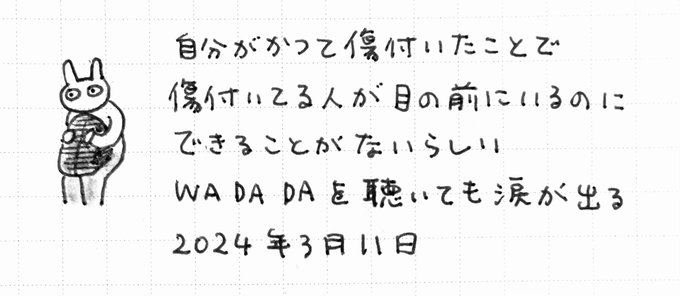 自分がかつて傷付いたことで
傷付いてる人が目の前にいるのに
できることがないらしい
WADADAを聴いても涙が出る
2024年3月11日